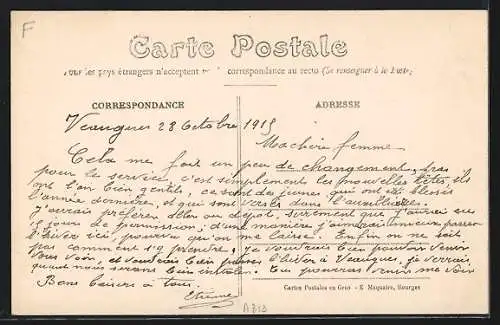 F
Carte Postale
les pays étrangers n'acceptent correspondance au recto (Se renseigner à la Poste)
CORRESPONDANCE
ADRESSE
Veaugues 28 Octobre 1915
Ma chère femme
Cela me fait un peu de changement, pas
pour le service, c'est simplement les nouvelles têtes, ils
ont l'air bien gentils, ce sont des jeunes qui ont été blessés
l'année dernière, et qui sont versés dans l'auxiliaire.
J'aurais préféré aller au dépôt, surement que j'aurai eu
jours de permission; d'une manière j'aimerais mieux passer
l'hiver ici, pourvu qu'on me laisse. Enfin on ne sait
pas comment s'y prendre, je voudrais bien pouvoir venir
vous voir, et voudrais bien passer l'hiver à Veaugues, je verrais
quand nous serons bien installés. tu pourras venir me voir
Bons baisers à tous.
Etienne
Cartes Postales en Gros - E. Maquaire, Bourges
A213